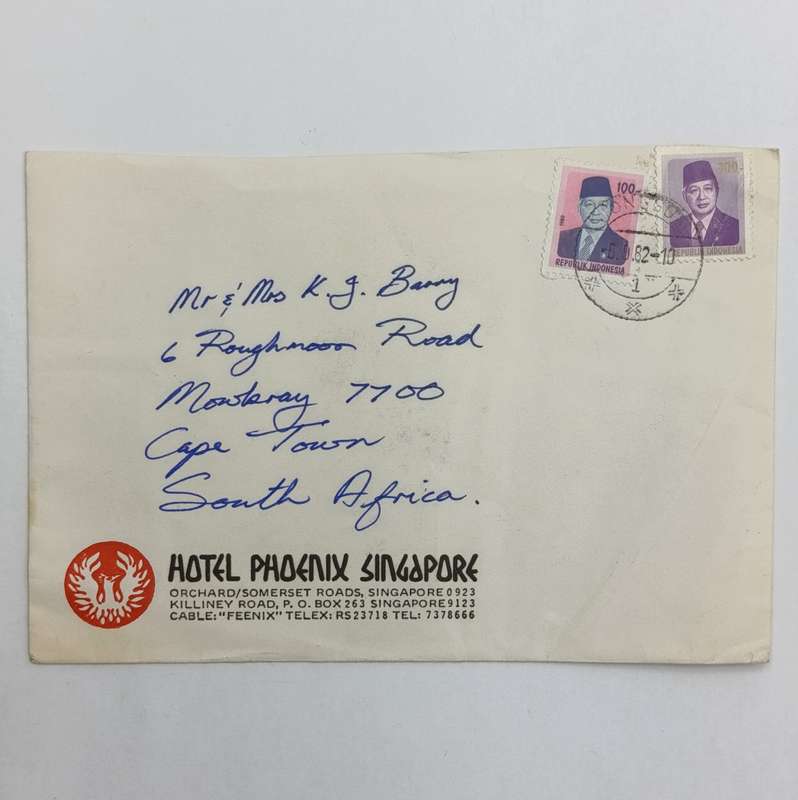 100
1980
REPUBLIK INDONESIA
REPUBLIK INDONESIA
82-10
1
Mr & Mrs K. J. Barry
6 Roughmoor Road
Mowbray 7700
Cape Town
South Africa.
HOTEL PHOENIX SINGAPORE
ORCHARD/SOMERSET ROADS, SINGAPORE 0923
KILLINEY ROAD, P. O. BOX 263 SINGAPORE 9123
CABLE: "FEENIX" TELEX: RS 23718 TEL: 7378666